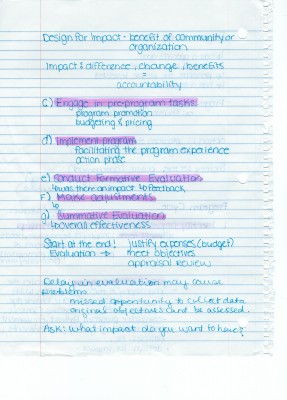 Design for Impact - benefit of community or
organization
Impact : difference, change, benefits
=
accountability
c) Engage in pre-program tasks.
program promotion
budgeting & pricing
d) Implement program
facilitating the program experience
action phase
e) Conduct Formative Evaluation
↳ was there an impact ↳ feedback
F) Make adjustments
↳
g) Summative Evaluation
↳ overall effectiveness
Start at the end! justify expenses (budget)
Evaluation → meet objectives
appraisal review
Delay in evaluation may cause
problems
missed opportunity to collect data
original objectives cant be assessed.
Ask: What impact do you want to have?